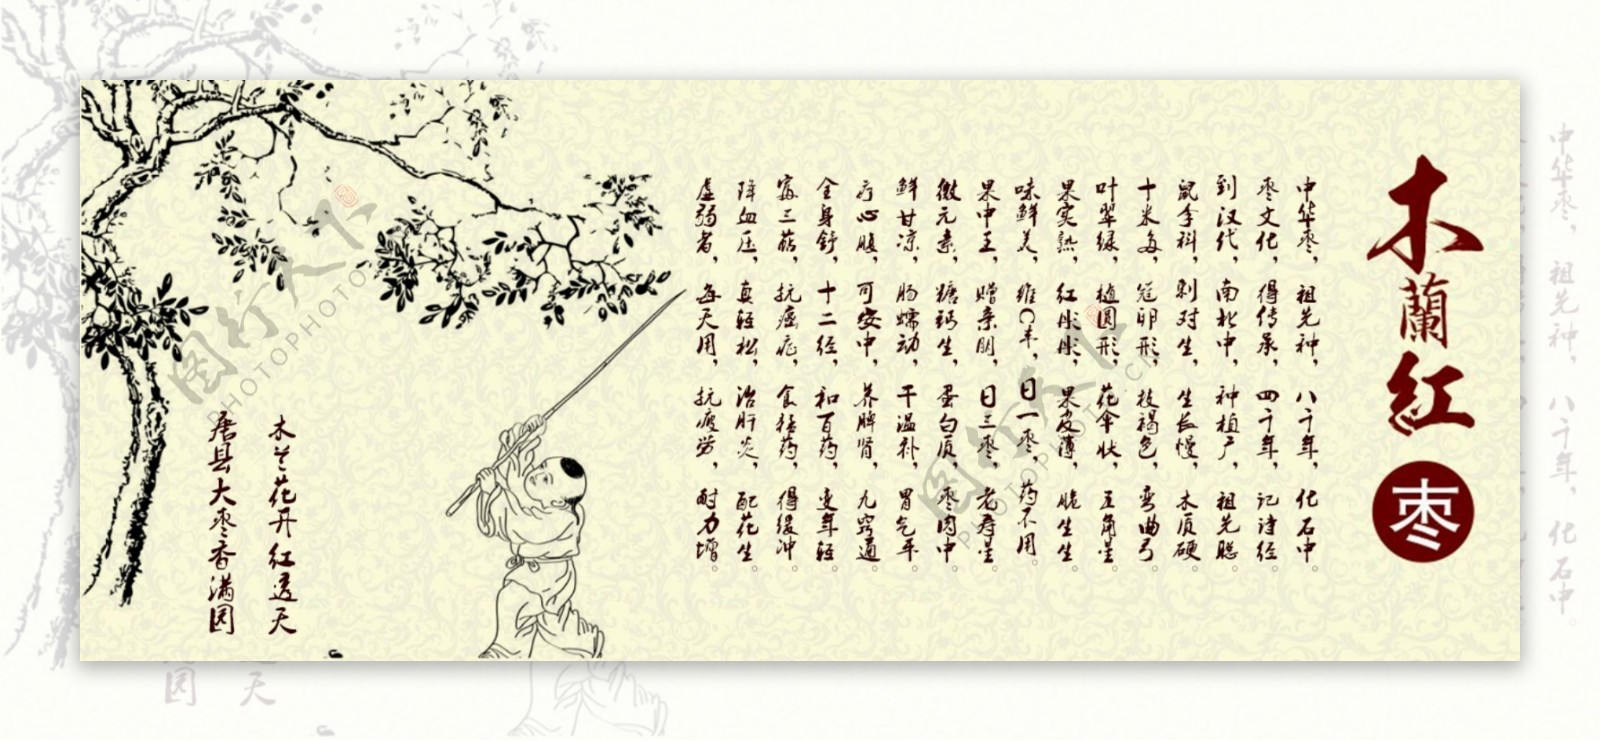 木蘭紅
枣
中华枣，祖先神，八千年，化石中。
枣文化，得传承，四千年，记诗经。
到汉代，南北中，种植广，祖先聪。
鼠李科，刺对生，生长慢，木质硬。
十米多，冠卵形，枝褐色，弯曲弓。
叶翠绿，椭圆形，花伞状，五角星。
果实熟，红彤彤，果皮薄，脆生生。
味鲜美，维C丰，日一枣，药不用。
果中王，赠亲朋，日三枣，老寿星。
微元素，糖钙生，蛋白质，枣肉中。
鲜甘凉，肠蠕动，干温补，胃气平。
疗心腹，可安中，养脾肾，九窍通。
全身舒，十二经，和百药，变年轻。
富三萜，抗癌症，食猛药，得缓冲。
降血压，真轻松，治肝炎，配花生。
虚弱者，每天用，抗疲劳，耐力增。
木兰花开红透天
唐县大枣香满园